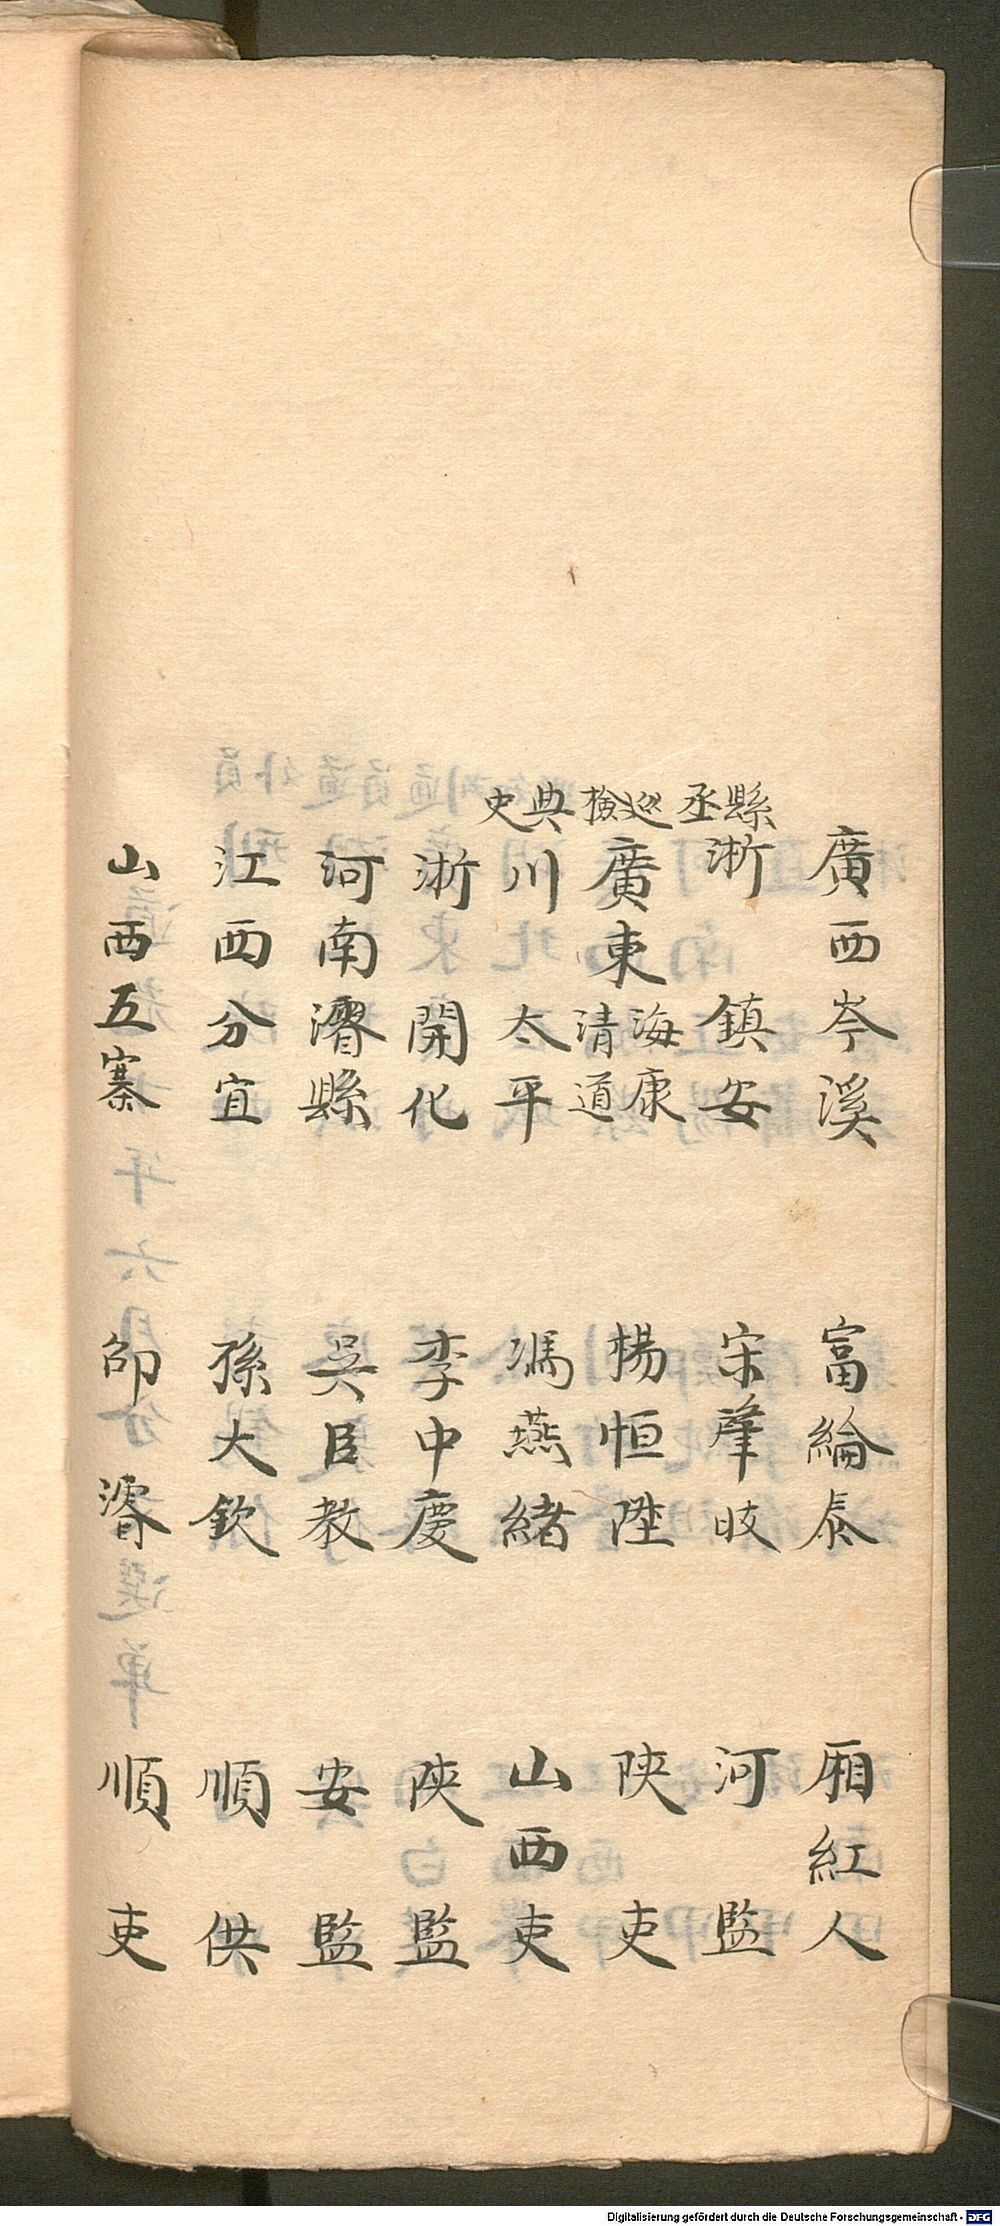 廣西岑溪 富綸泰 廂紅人
縣丞 浙 鎮安 宋肇岐 河 監
巡檢 廣東海康清道 楊恒陞 陝 吏
典史 川 太平 馮燕緒 山西吏
浙 開化 李中慶 陝 監
河南濬縣 吳臣教 安 監
江西分宜 孫大欽 順 供
山西五寨 邵濬 順 吏
Digitalisierung gefördert durch die Deutsche Forschungsgemeinschaft - DFG